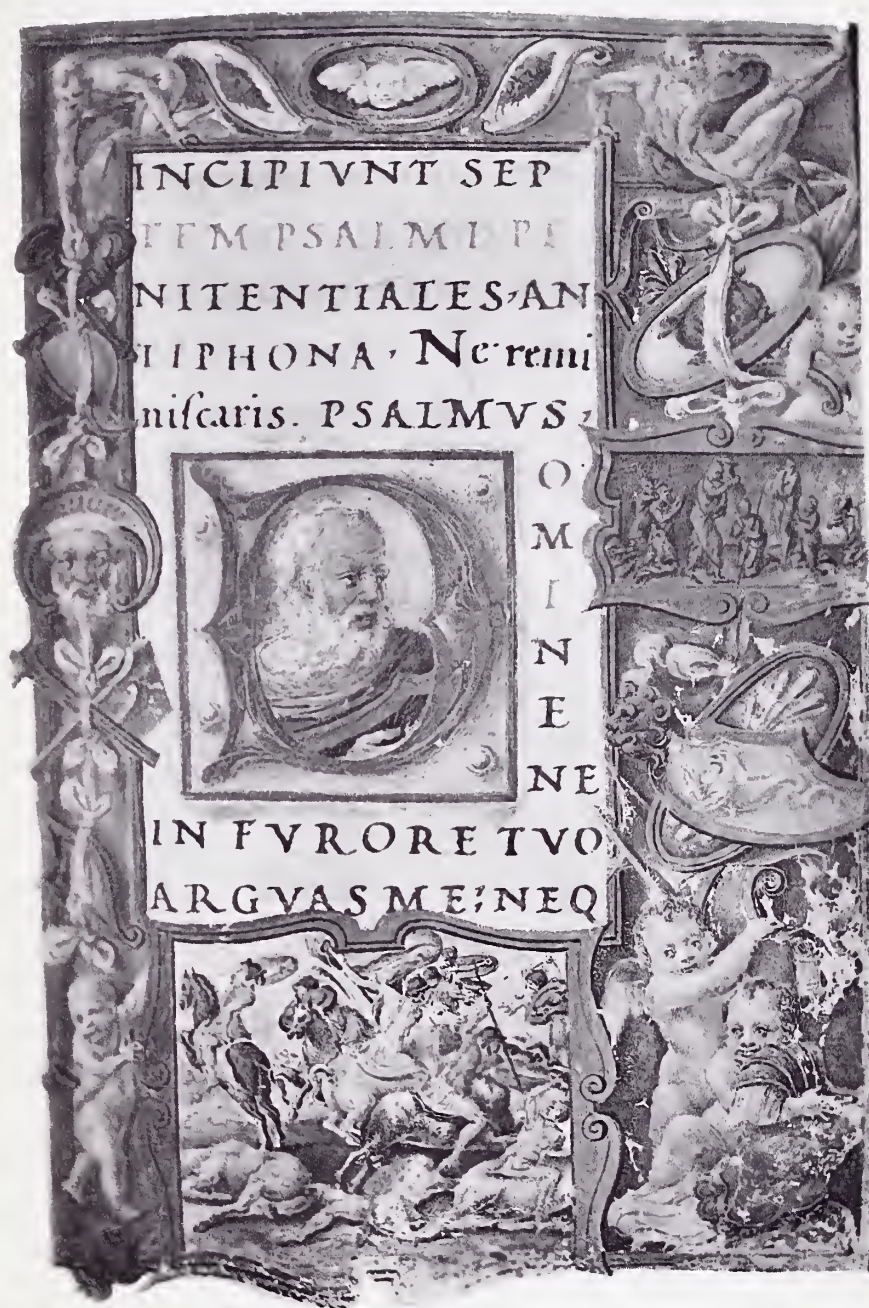 INCIPIVNT SEP
TEM PSALMI PE
NITENTIALES, AN
TIPHONA, Ne remi
niſcaris. PSALMVS,
D
O
M
I
N
E
NE
IN FVRORE TVO
ARGVAS ME: NEQ